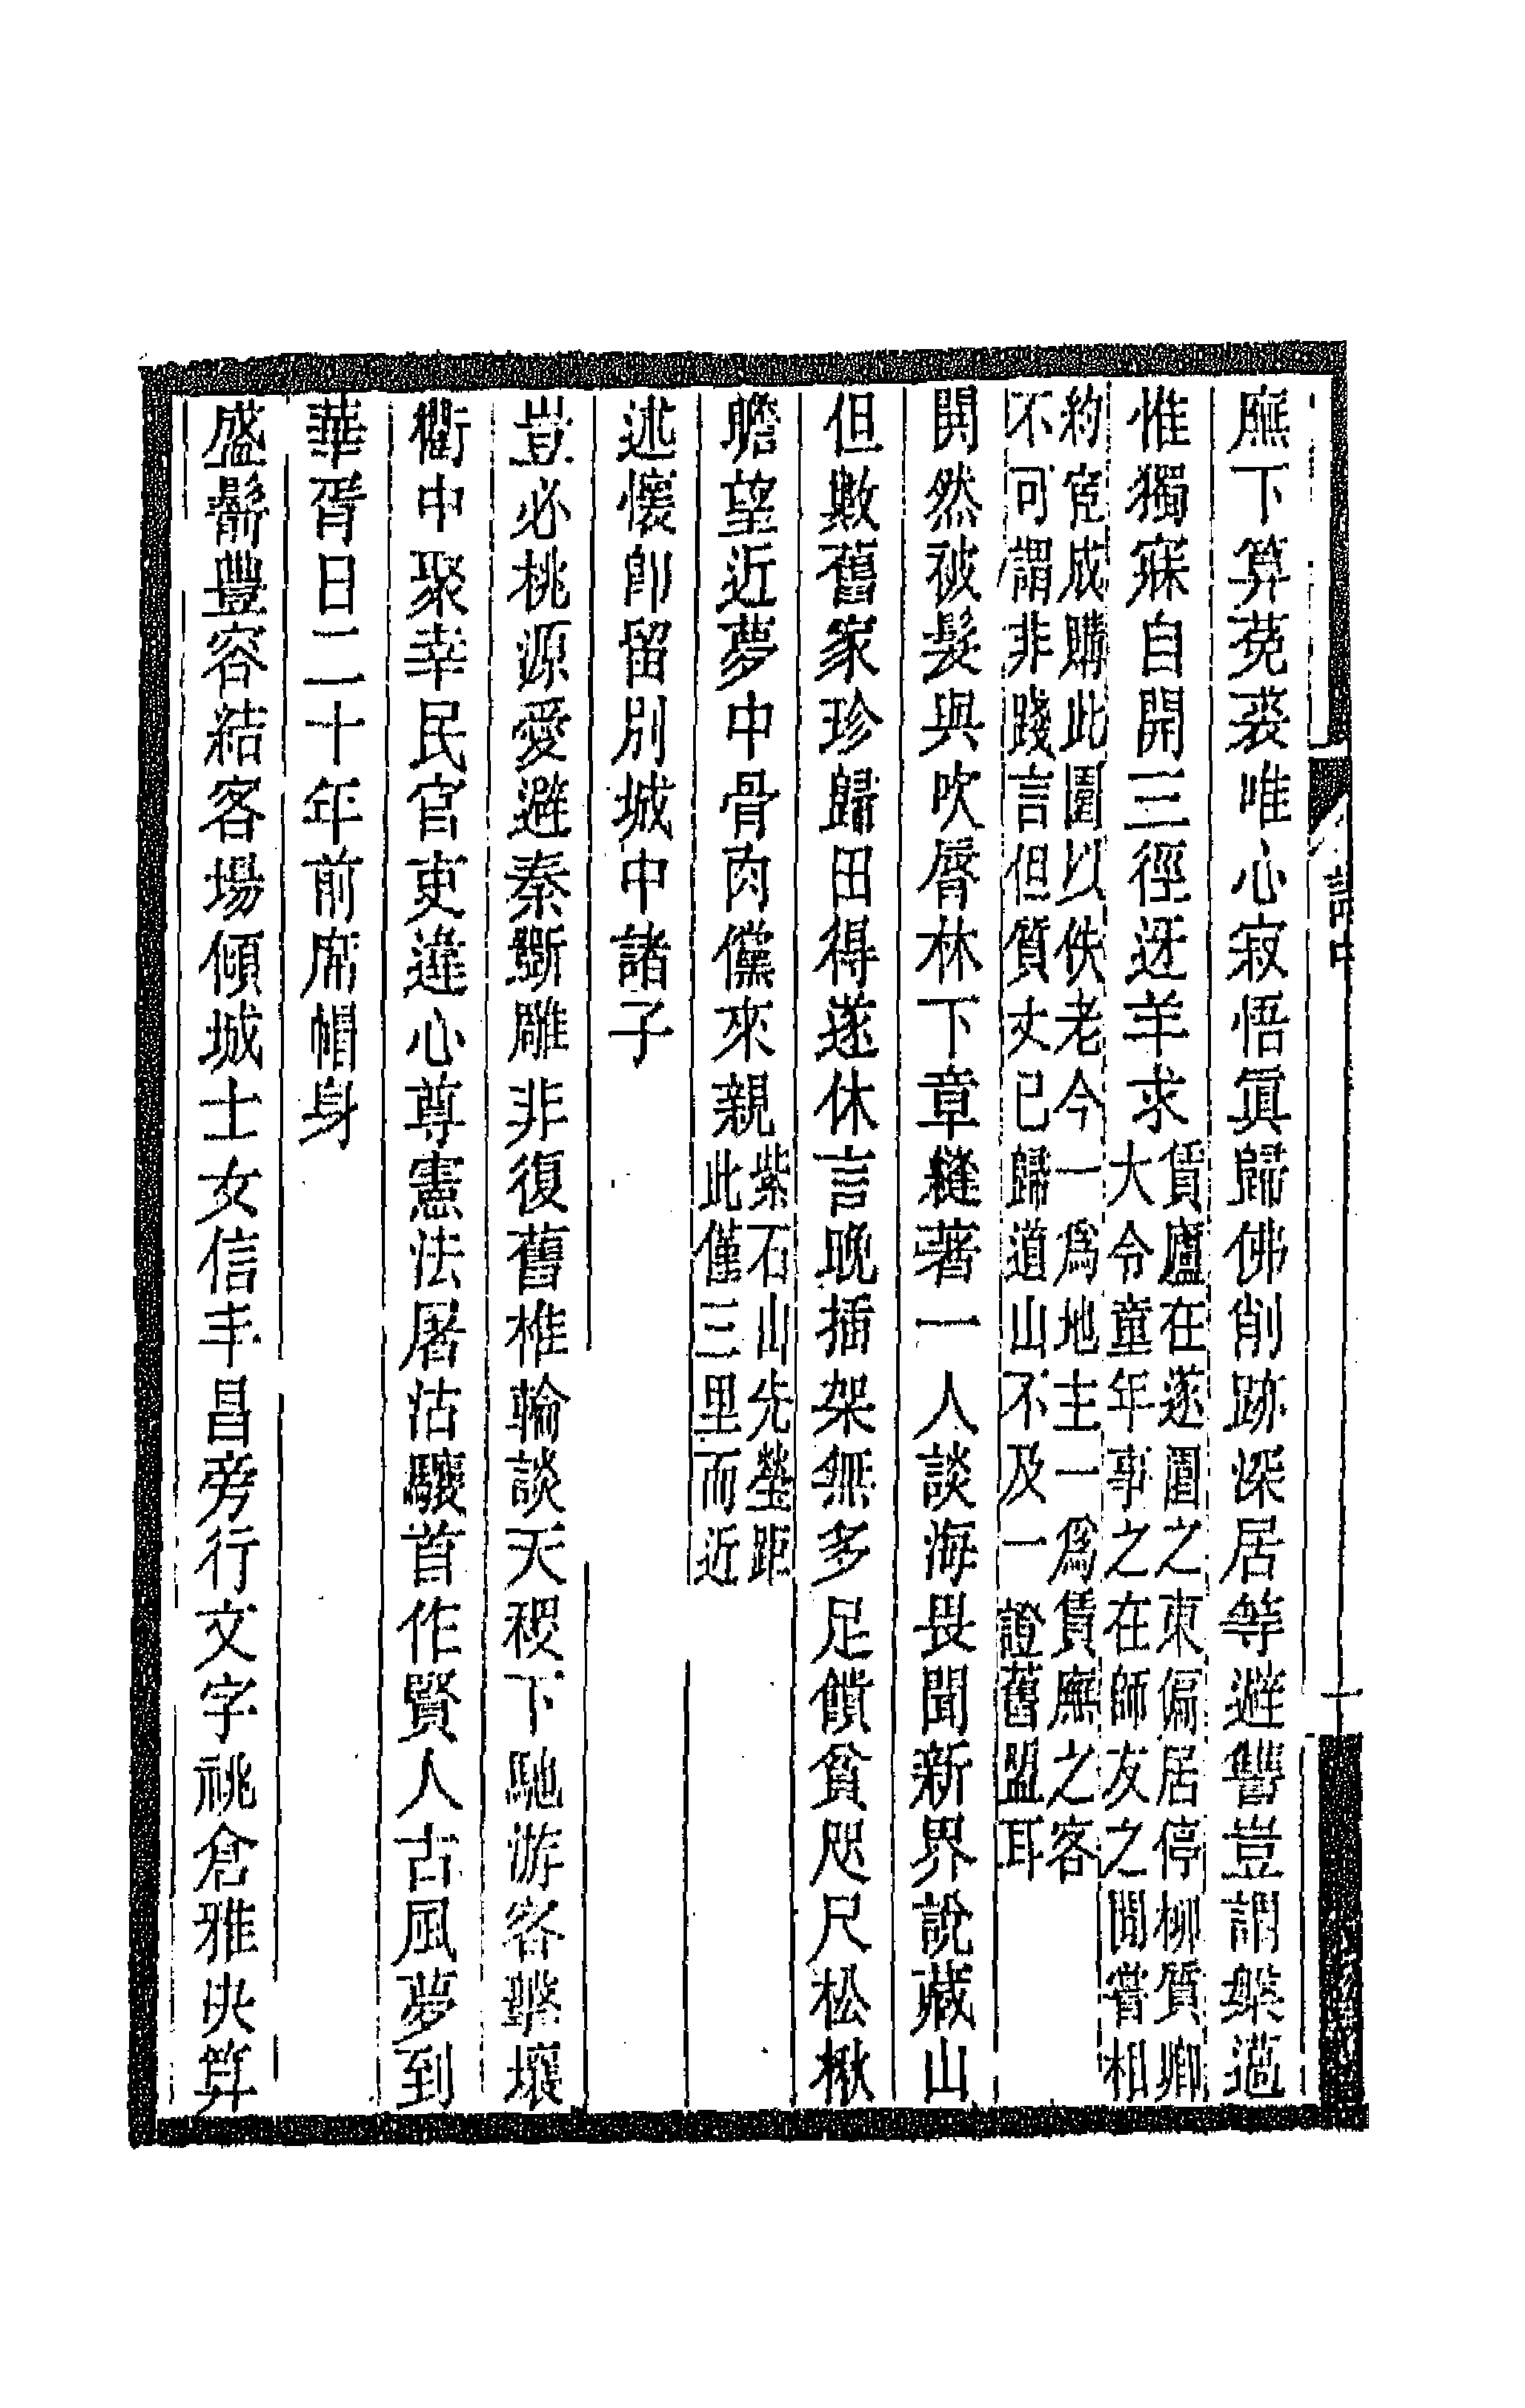 詩中
十
廡下算菟裘唯心寂悟眞歸佛削跡深居等避讐豈謂槃薖
惟獨寐自開三徑迓羊求賃廬在遂園之東偏居停柳質卿
大令童年事之在師友之間嘗相
約宦成購此園以佚老今一爲地主一爲賃廡之客
不可謂非踐言但質丈已歸道山不及一證舊盟耳
閧然被髮與吹脣林下章縫著一人談海畏聞新界說藏山
但數舊家珍歸田得遂休言晚插架無多足饋貧咫尺松楸
瞻望近夢中骨肉儻來親紫石山先塋距
此僅三里而近
述懷卽留別城中諸子
豈必桃源愛避秦斲雕非復舊椎輪談天稷下馳游客擊壤
衢中聚幸民官吏違心尊憲法屠沽驤首作賢人古風夢到
華胥日二十年前席帽身
盛鬋豐容結客場傾城士女信丰昌旁行文字祧倉雅决算